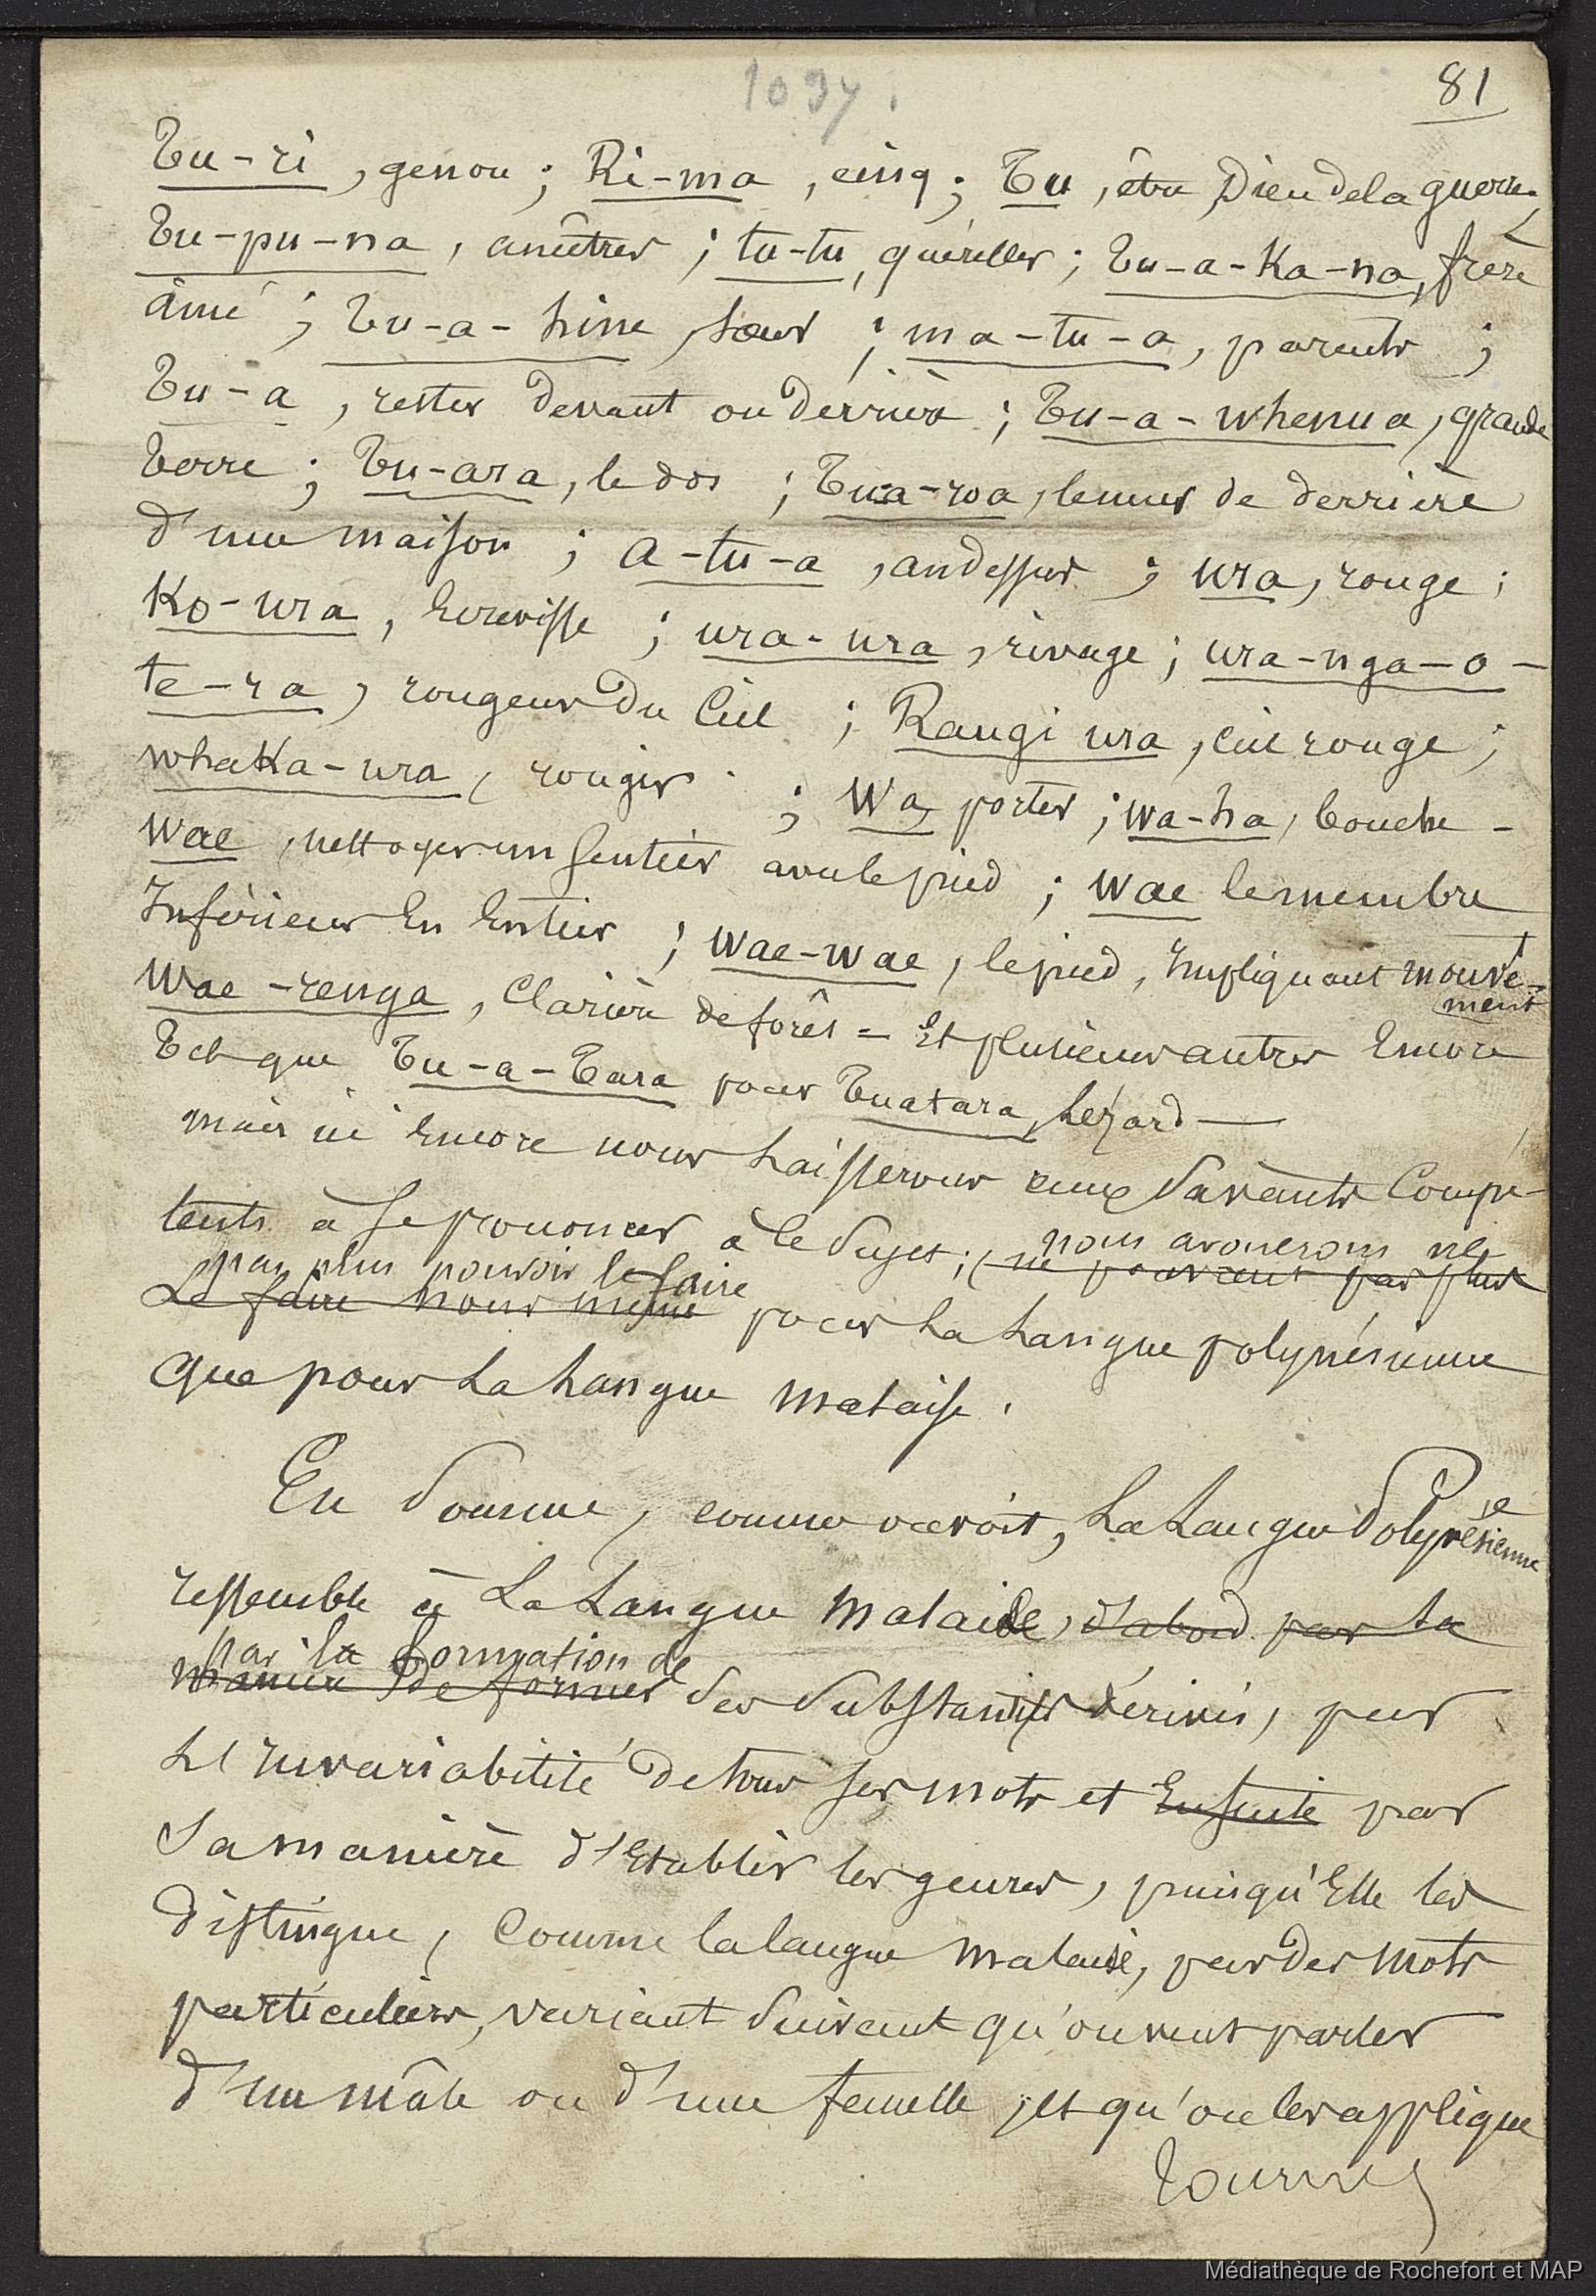 1037.
81
Tu-ri, genou; Ri-ma, cinq; Tu, être, Dieu de la guerre;
Tu-pu-na, ancêtres; tu-tu, quereller; Tu-a-Ka-na, frère
ainé; Tu-a-hine, sœur; ma-tu-a, parents;
Tu-a, rester devant ou derrière; Tu-a-whenua, grande
Terre; Tu-ara, le dos; Tua-roa, le mur de derrière
d'une maison; A-tu-a, au dessus; ura, rouge;
Ko-ura, Ecrevisse; ura-ura, rivage; ura-nga-o-
te-ra, rougeur du Ciel; Rangi ura, ciel rouge;
whaKa-ura, rougir; Wa, porter; wa-ha, bouche -
Wae, nettoyer un sentier avec le pied; Wae le membre
Inférieur En Entier; Wae-wae, le pied, Impliquant mouve-
ment
Wae-renga, Clarière de forêt = Et plusieurs autres Encore
Tels que Tu-a-Tara pour Tuatara, Lézard —
mais ici Encore nous Laisserons aux Savants Compé-
tents à se prononcer à ce sujet; nous avouerons ne
ne pouvant pas plus
pas plus pouvoir le faire
Le faire nous même pour La Langue polynésienne
que pour La Langue malaise.
En Somme, comme on voit, La Langue Polynésienne
ressemble à La Langue Malaise, d'abord par la
par la formation de
manière de former des Substantifs dérivés, par
L'Invariabilité de tous ses mots et Ensuite par
Sa manière d'Etablir les genres, puisqu'Elle les
distingue, Comme la langue Malaise, par des mots
particuliers, variant Suivant qu'on veut parler
d'un mâle ou d'une femelle, et qu'on les applique
Médiathèque de Rochefort et MAP